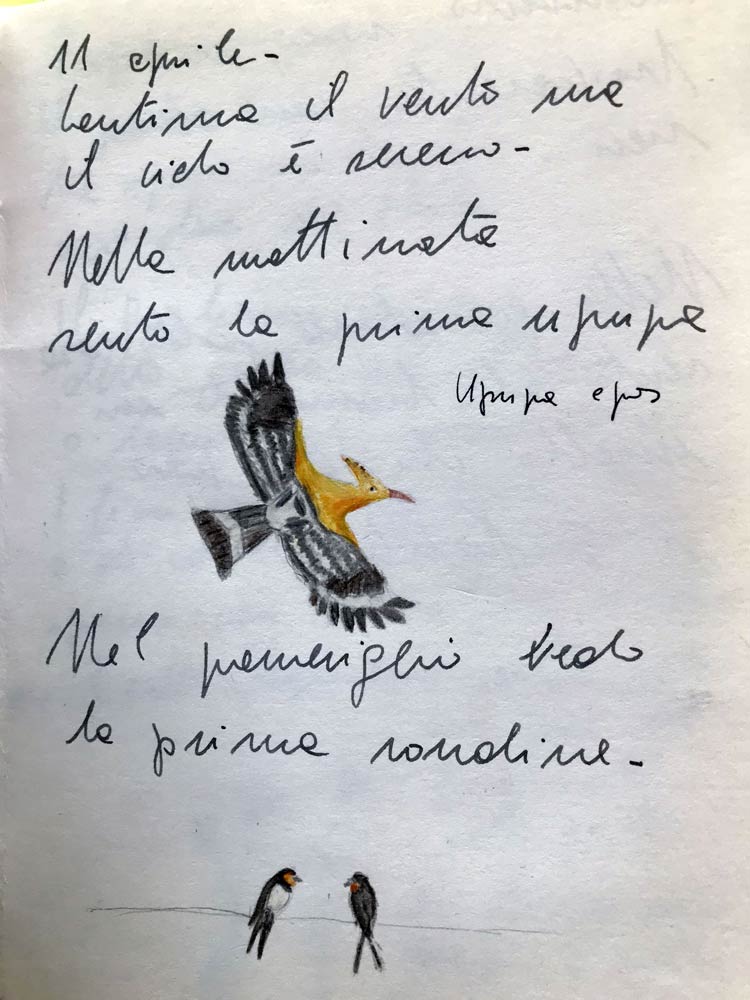 11 aprile -
Continua il vento ma
il cielo è sereno -
Nella mattinata
sento la prima upupa
Upupa epos
Nel pomeriggio vedo
la prima rondine -